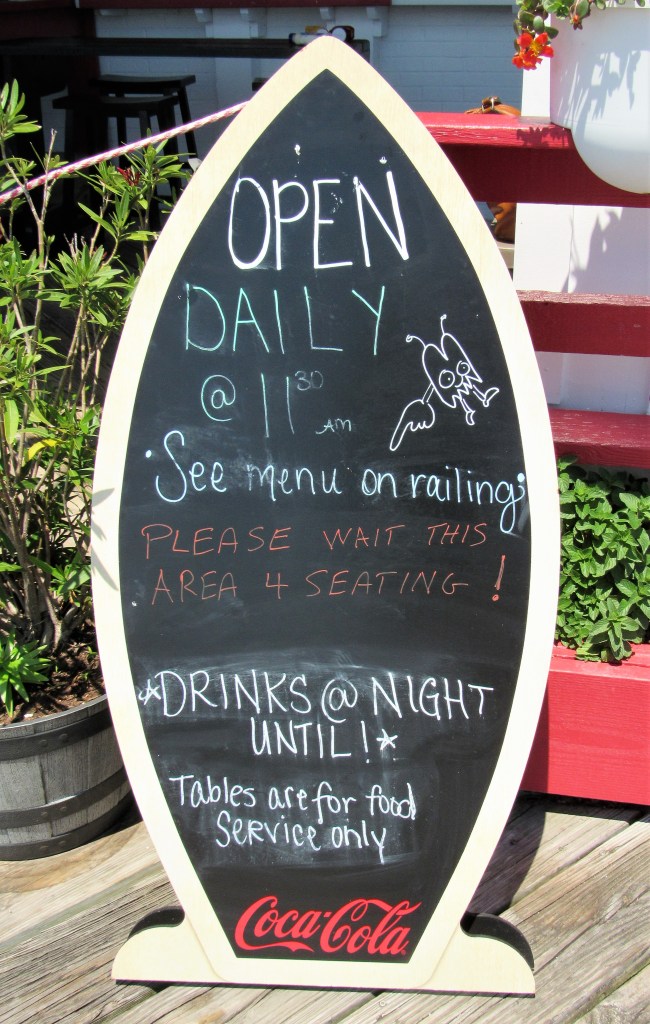 OPEN
DAILY
@ 11 30 AM
See menu on railing
PLEASE WAIT THIS
AREA 4 SEATING!
*DRINKS @ NIGHT
UNTIL!*
Tables are for food
Service only
Coca-Cola